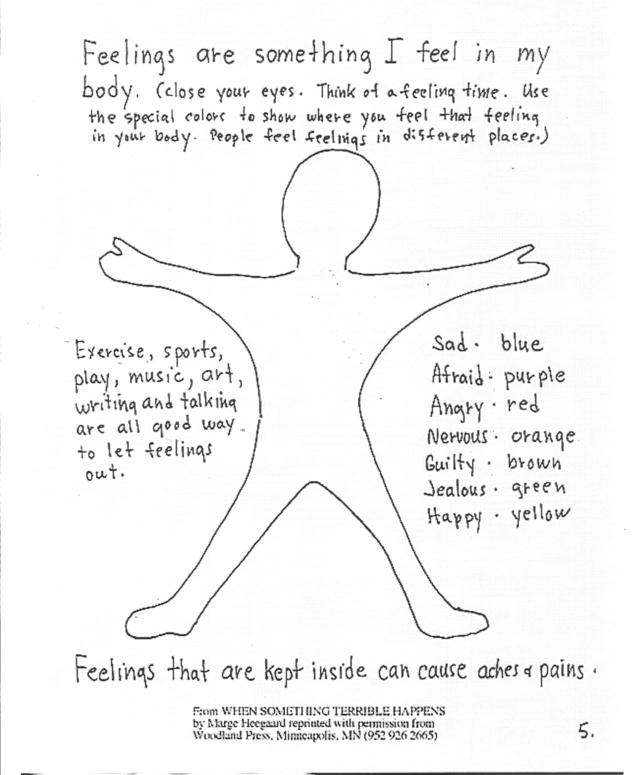 Feelings are something I feel in my
body. (close your eyes. Think of a feeling time. Use
the special colors to show where you feel that feeling
in your body. People feel feelings in different places.)
Exercise, sports,
play, music, art,
writing and talking
are all good way
to let feelings
out.
Sad. blue
Afraid: purple
Angry. red
Nervous. orange
Guilty. brown
Jealous. green
Happy. yellow
Feelings that are kept inside can cause aches & pains.
From WHEN SOMETHING TERRIBLE HAPPENS
by Marge Heegaard reprinted with permission from
Woodland Press, Minneapolis, MN (952 926 2665)
5.